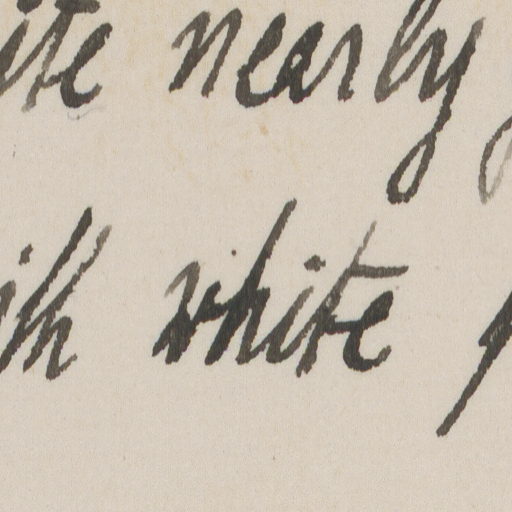 ite nearly
ith white